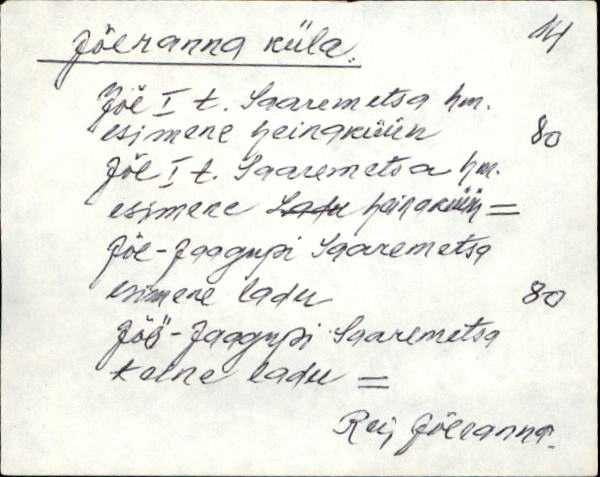 Jõeranna küla. 14
Jõe I t. Saaremetsa hm.
esimene heinaküün 80
Jõe I t. Saaremetsa hm.
esimene Ladu heinaküün =
Jõe-Jaagupi Saaremetsa
esimene ladu 80
Jõe-Jaagupi Saaremetsa
teine ladu =
Rei, Jõeranna.